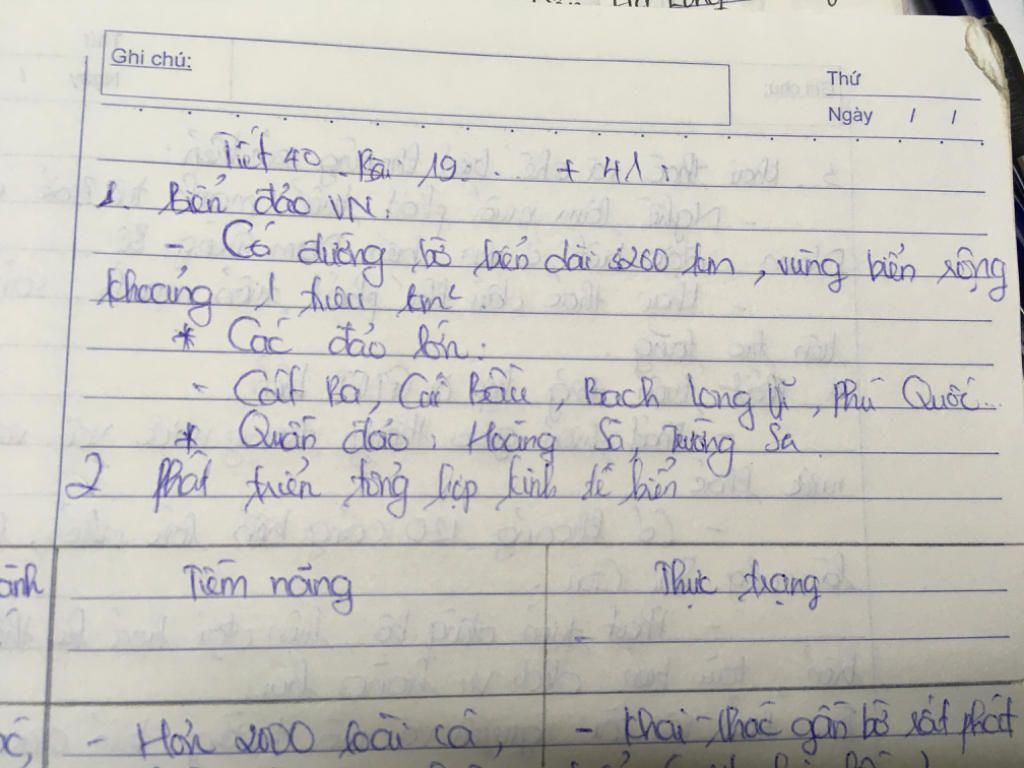 Ghi chú:
Thứ
Ngày / /
Tiết 40 Bài 19. + 41
1. Biển đảo VN.
- Có đường bờ biển dài 3260 km, vùng biển rộng
khoảng 1 triệu km²
* Các đảo lớn:
- Cát Bà, Cái Bầu, Bạch Long Vĩ, Phú Quốc...
* Quần đảo: Hoàng Sa, Trường Sa.
2 Phát triển tổng hợp kinh tế biển
Tiềm năng Thực trạng
-
- Hơn 2000 loài cá, - Khai thác gần bờ sát phát